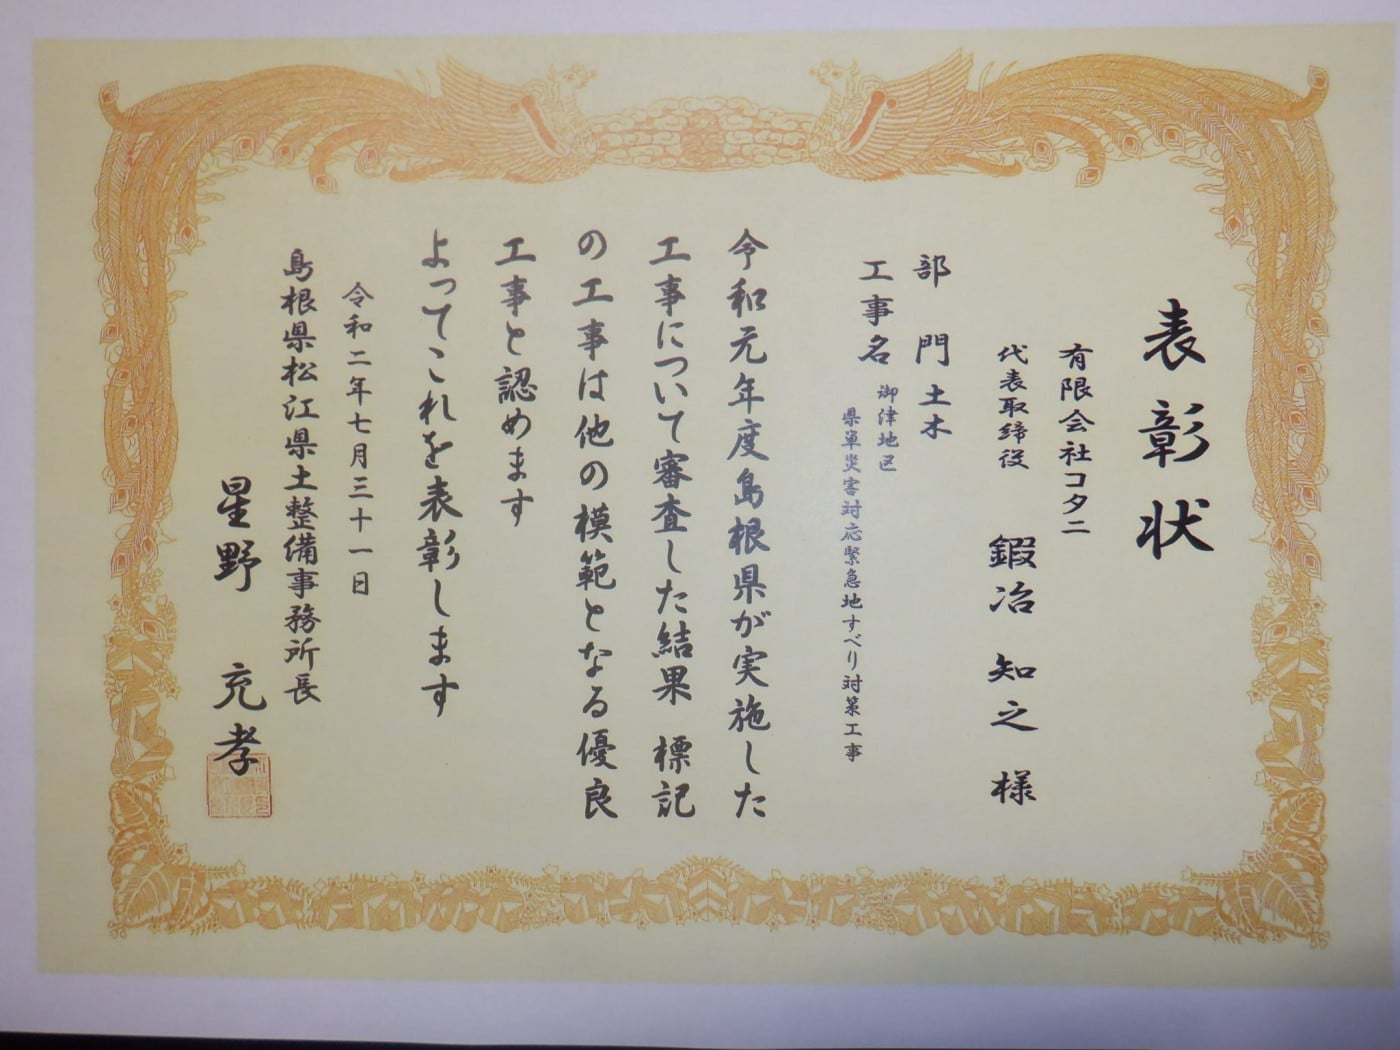 表彰状
有限会社コタニ
代表取締役 鍜冶 知之 様
部 門 土木
工事名 御津地区
県単災害対応緊急地すべり対策工事
令和元年度島根県が実施した
工事について審査した結果 標記
の工事は他の模範となる優良
工事と認めます
よってこれを表彰します
令和二年七月三十一日
島根県松江県土整備事務所長
星野 充孝